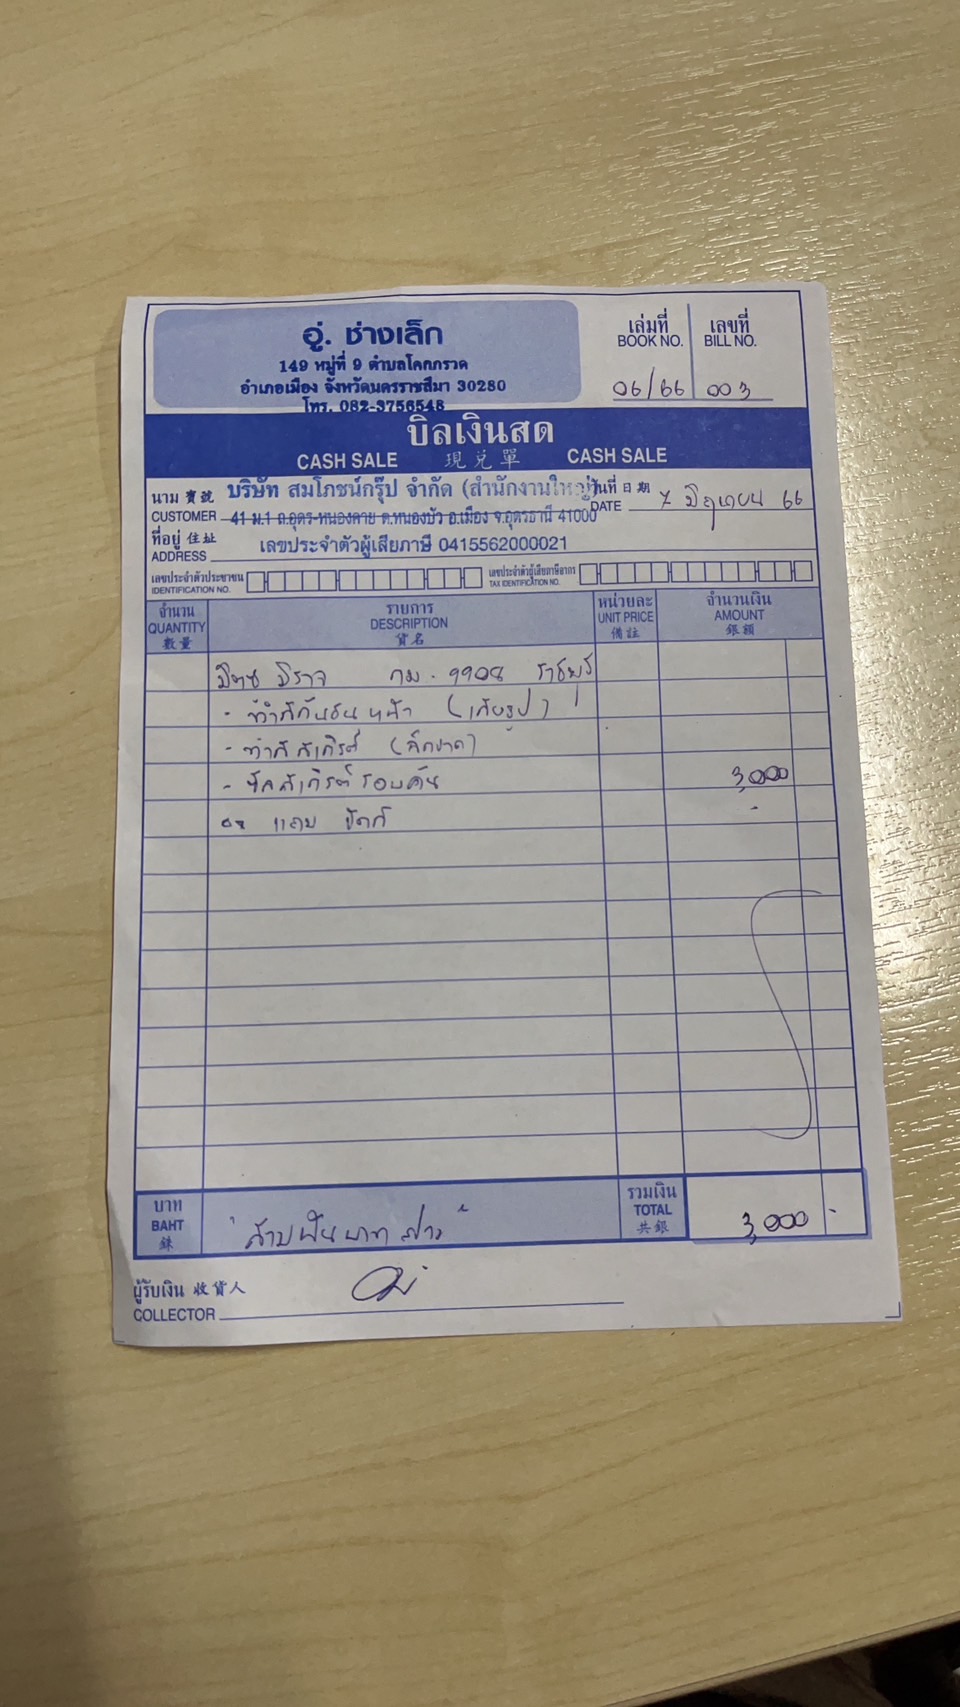 อู่. ช่างเล็ก
149 หมู่ที่ 9 ตำบลโคกกรวด
อำเภอเมือง จังหวัดนครราชสีมา 30280
โทร. 082-3756548
เล่มที่ เลขที่
BOOK NO. BILL NO.
06/66 003
บิลเงินสด
CASH SALE 現兌單 CASH SALE
นาม 寳號 บริษัท สมโภชน์กรุ๊ป จำกัด (สำนักงานใหญ่) วันที่ 日期
CUSTOMER 41 ม.1 ถ.อุดร-หนองคาย ต.หนองบัว อ.เมือง จ.อุดรธานี 41000 DATE 7 มิถุนายน 66
ที่อยู่ 住址
ADDRESS เลขประจำตัวผู้เสียภาษี 0415562000021
เลขประจำตัวประชาชน เลขประจำตัวผู้เสียภาษีอากร
IDENTIFICATION NO. TAX IDENTIFICATION NO.
จำนวน รายการ หน่วยละ จำนวนเงิน
QUANTITY DESCRIPTION UNIT PRICE AMOUNT
數量 貨名 備註 銀額
มิตซู มิราจ กม. ราชบุรี
- ทำสีกันชนหน้า (เสียรูป)
- ทำสีสเกิร์ต
- สเกิร์ตรอบคัน 3,000
แถม -
บาท รวมเงิน
BAHT TOTAL
銖 共銀
" สามพันบาทถ้วน " 3,000 -
ผู้รับเงิน 收貨人
COLLECTOR